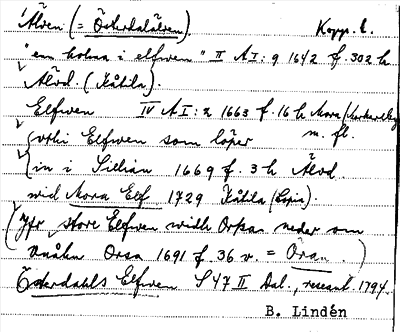 Älven (= Österdalälven) Kopp. l.
"en holma i elfwen" II A I: 9 1642 f. 302 h
Älvd. (Kåtila).
Elfwen IV A I: 2 1663 f. 16 h Mora
(vthi Elfwen som löper m. fl.
(in i Sillian 1669 f. 3 h Älvd.
wid Mora Elf 1729 Kåtila (Copia).
(Jfr store Elfwen widh Orsa neder om
Orsa 1691 f. 36 v. = Ora
Österdahls Elfwen S 47 II Dal., resent. 1794.
B. Lindén